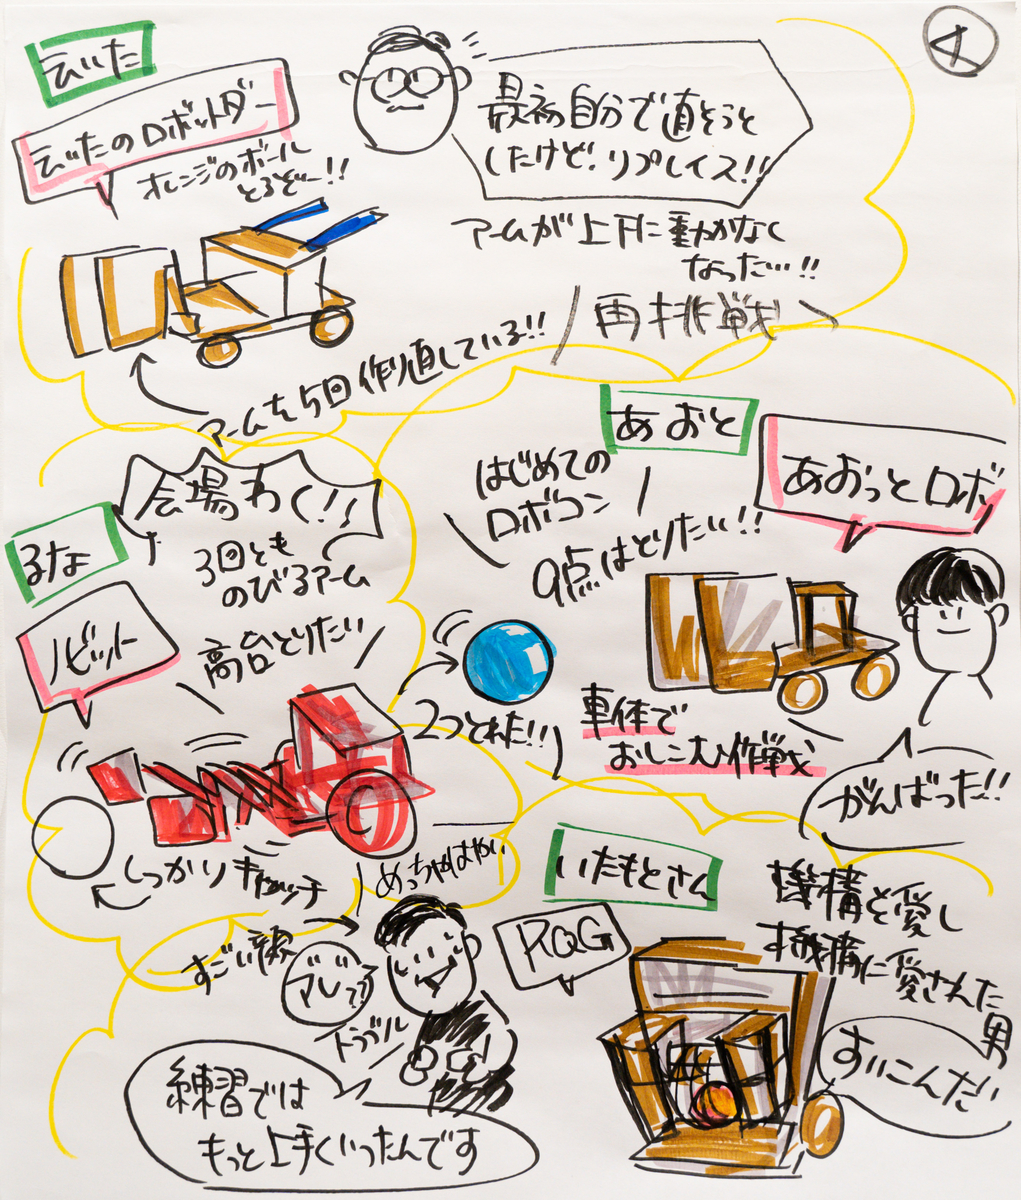 4
えいた
えいたのロボットダー
オレンジのボール
とるぞー!!
最初自分で直そうと
したけど、リプレイス!!
アームが上下に動かなく
なった…!!
再挑戦
アームを5回作り直している!!
あおと
あおっとロボ
はじめての
ロボコン
9点はとりたい!!
車体で
おしこみ作戦
がんばった!!
会場わく!!
るなょ
3回とも
のびるアーム
ノビット
高台とりたい
2つとれた!!
しっかりキャッチ
めっちゃはやい
いたもとさん
RQG
機構を愛し
機構に愛された
男
すいこんだ
すごい
マレ"??
トラブル
練習では
もっと上手くいったんです